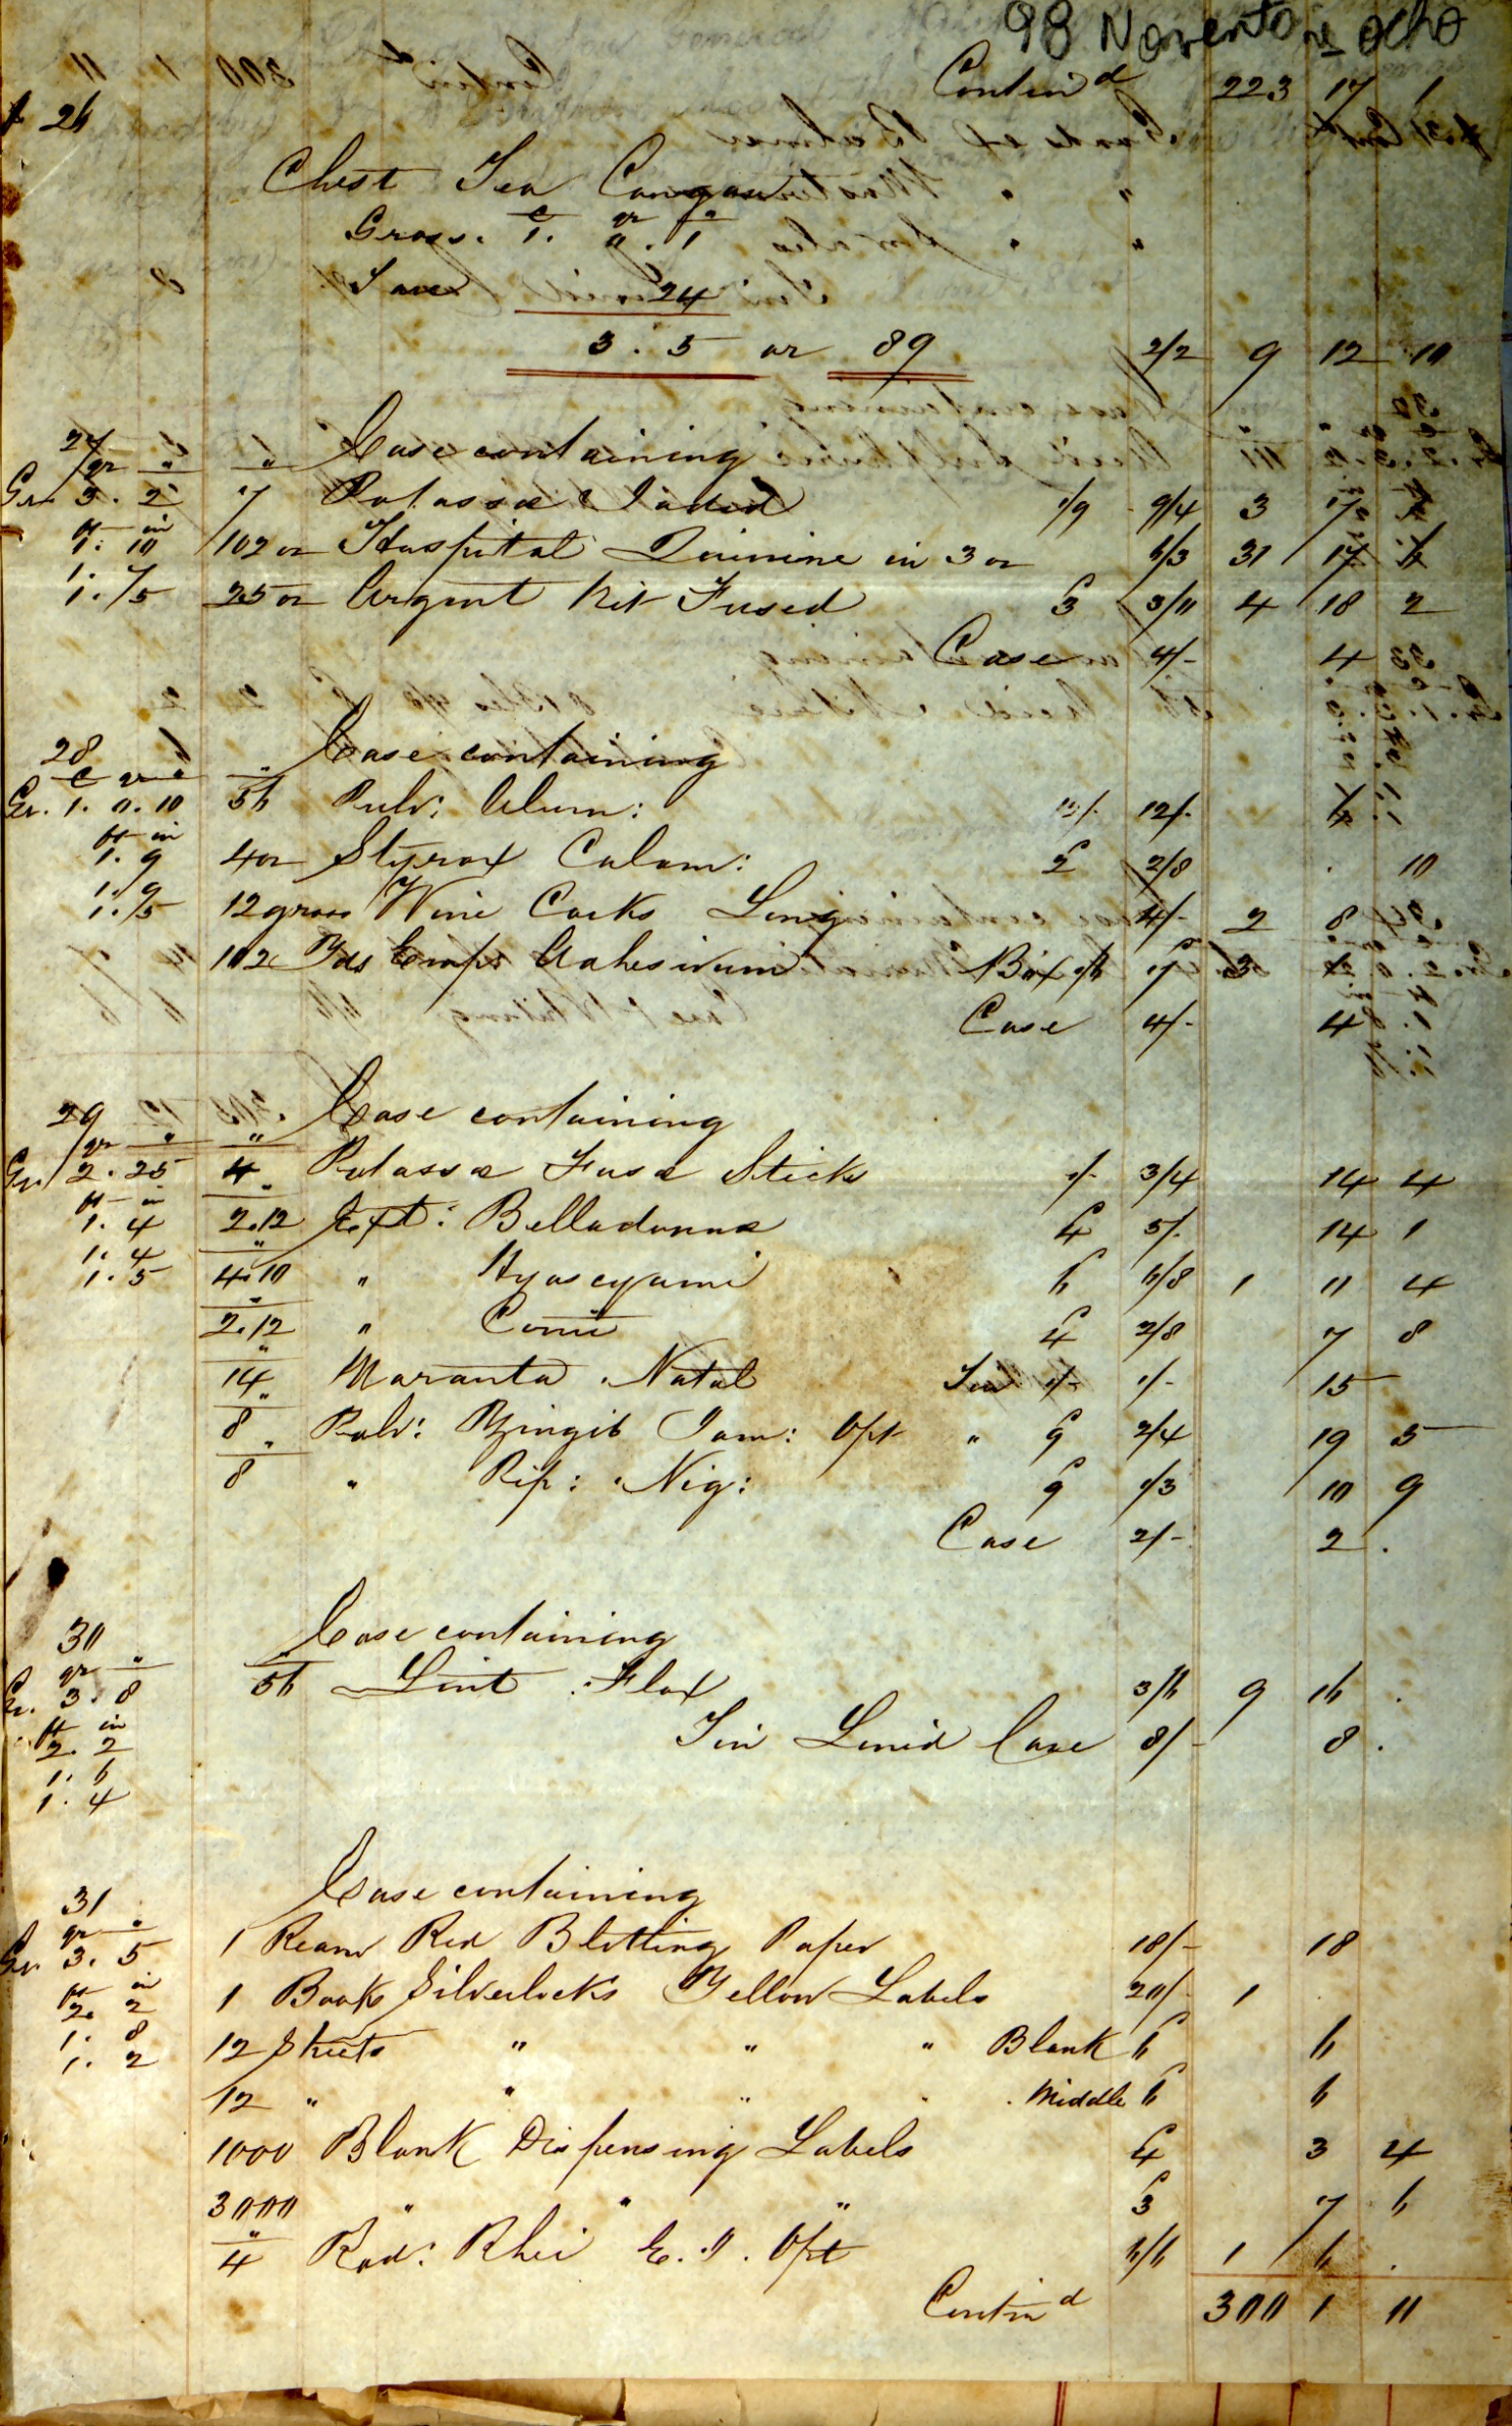 98 Noventa y ocho
Contind 223 17 1
26
Chest Tea Congou
Gross. 1. 0. 1
Tare 24
3. 5 or 89 2/2 9 12 10
27 Case containing
Gr. 3. 2 7 Potassæ Iodid 1/9 9/4 3 17
ft in
1. 10 102 oz Hospital Quinine in 3 oz 6/3 31 17 6
1. 7
1. 5 25 oz Argent Nit Fused 3 3/11 4 18 2
Case 4/- 4
28 Case containing
Gr. 1. 0. 10 56 Pulv: Alum: 12/-
ft in
1. 9 4 oz Styrax Calam: 2 2/8 10
1. 9
1. 5 12 gross Wine Corks Long 4/- 2 8
102 Yds Emp: Adhesivum Box 3
Case 4/- 4
29 Case containing
qr
Gr. 2. 25 4 Potassæ Fusæ Sticks 1/- 3/4 14 4
ft in
1. 4 2.12 Ext: Belladonnæ 4 5/. 14 1
1. 4
1. 5 4.10 " Hyoscyami 6 6/8 1 11 4
2.12 " Conii 4 2/8 7 8
14 Maranta Natal Tin 1/- 1/- 15
8 Pulv: Zingib Jam: Opt " 9 2/4 19 5
8 " Pip: Nig: 9 1/3 10 9
Case 2/- 2 .
30 Case containing
qr
Gr. 3. 8 56 Lint Flax 3/6 9 16 .
ft in
2. 2 Tin Lined Case 8/- 8 .
1. 6
1. 4
31 Case containing
qr
Gr. 3. 5 1 Ream Red Blotting Paper 18/- 18
ft in
2. 2 1 Book Silverlocks Yellow Labels 20/- 1 .
1. 8
1. 2 12 Sheets " " " Blank 6 6
12 " " " " Middle 6 6
1000 Blank Dispensing Labels 4 3 4
3000 " " " 3 7 6
4 Rad: Rhei E. I. Opt 6/6 1 6 .
Contind 300 1 11